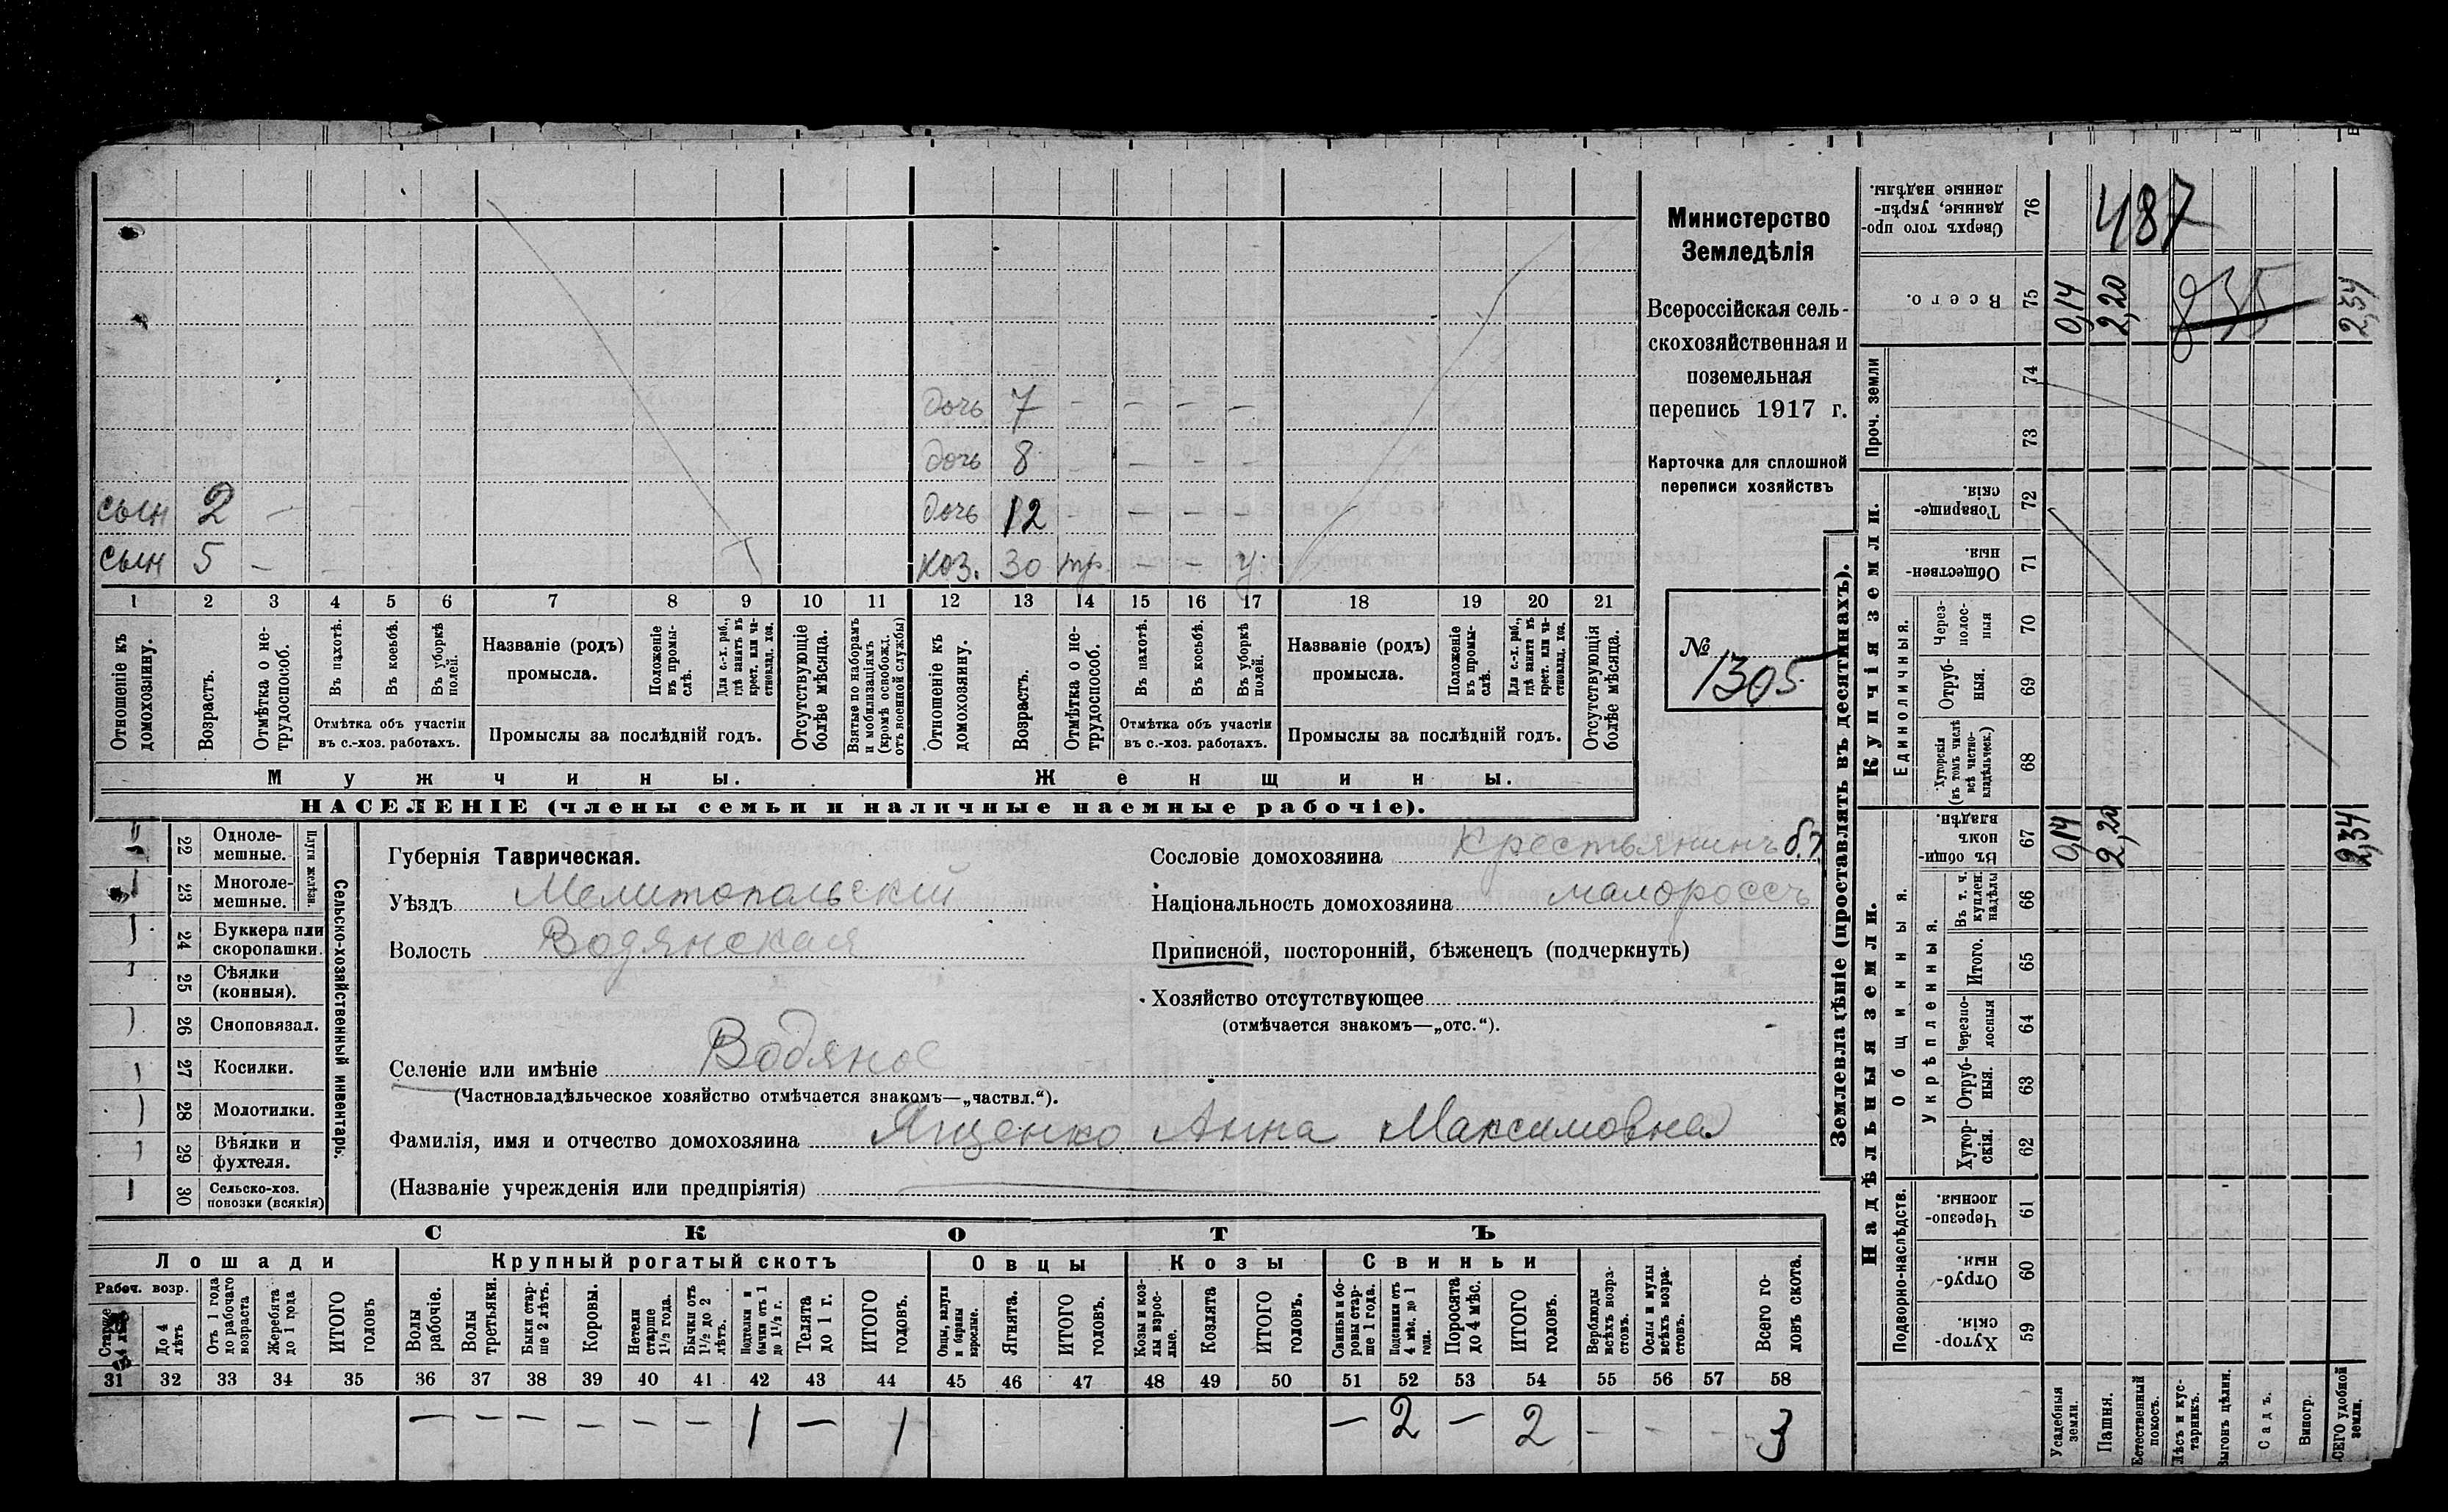 дочь 7 — — — —
дочь 8 — — — —
сын 2 — дочь 12 — — — —
сын 5 — хоз. 30 тр. — — у.
1 2 3 4 5 6 7 8 9 10 11 12 13 14 15 16 17 18 19 20 21
Отношеніе къ домохозяину.
Возрастъ.
Отмѣтка о нетрудоспособ.
Въ пахотѣ.
Въ косьбѣ.
Въ уборкѣ полей.
Отмѣтка объ участіи въ с.-хоз. работахъ.
Названіе (родъ) промысла.
Положеніе въ промыслѣ.
Для с.-х. раб., гдѣ занятъ въ крест. или частновлад. хоз.
Промыслы за послѣдній годъ.
Отсутствующіе болѣе мѣсяца.
Взятые по наборамъ и мобилизаціямъ (кромѣ освобожд. отъ военной службы)
Отношеніе къ домохозяину.
Возрастъ.
Отмѣтка о нетрудоспособ.
Въ пахотѣ.
Въ косьбѣ.
Въ уборкѣ полей.
Отмѣтка объ участіи въ с.-хоз. работахъ.
Названіе (родъ) промысла.
Положеніе въ промыслѣ.
Для с.-х. раб., гдѣ занятъ въ крест. или частновлад. хоз.
Промыслы за послѣдній годъ.
Отсутствующія болѣе мѣсяца.
Мужчины.
Женщины.
НАСЕЛЕНІЕ (члены семьи и наличные наемные рабочіе).
Министерство
Земледѣлія
Всероссійская сель-
скохозяйственная и
поземельная
перепись 1917 г.
Карточка для сплошной
переписи хозяйствъ
№
1305
22 Одноле-
мешные.
23 Многоле-
мешные.
Плуги желѣзн.
24 Буккера или
скоропашки.
25 Сѣялки
(конныя).
26 Сноповязал.
27 Косилки.
28 Молотилки.
29 Вѣялки и
фухтеля.
30 Сельско-хоз.
повозки (всякія)
Сельско-хозяйственный инвентарь.
Губернія Таврическая.
Уѣздъ Мелитопольскій
Волость Водянская
Селеніе или имѣніе Водяное
(Частновладѣльческое хозяйство отмѣчается знакомъ—„частвл.“).
Фамилія, имя и отчество домохозяина Ященко Анна Максимовна
(Названіе учрежденія или предпріятія)
Сословіе домохозяина Крестьянинъ
Національность домохозяина малороссъ
Приписной, посторонній, бѣженецъ (подчеркнуть)
Хозяйство отсутствующее
(отмѣчается знакомъ—„отс.“).
СКОТЪ
Лошади
Крупный рогатый скотъ
Овцы
Козы
Свиньи
Рабоч. возр.
Старше 4 лѣтъ
До 4 лѣтъ
Отъ 1 года до рабочаго возраста
Жеребята до 1 года
ИТОГО головъ
Волы рабочіе.
Волы третьяки.
Быки старше 2 лѣтъ.
Коровы.
Нетели старше 1½ года.
Бычки отъ 1½ до 2 лѣтъ.
Подтелки и бычки отъ 1 до 1½ г.
Телята до 1 г.
ИТОГО головъ.
Овцы, валухи и бараны взрослые.
Ягнята.
ИТОГО головъ.
Козы и козлы взрослые.
Козлята
ИТОГО головъ.
Свиньи и боровы старше 1 года.
Подсвинки отъ 4 мѣс. до 1 года.
Поросята до 4 мѣс.
ИТОГО головъ.
Верблюды всѣхъ возрастовъ.
Ослы и мулы всѣхъ возрастовъ.
Всего головъ скота.
31 32 33 34 35 36 37 38 39 40 41 42 43 44 45 46 47 48 49 50 51 52 53 54 55 56 57 58
— — — — — — 1 — 1 — 2 — 2 — — — 3
Землевладѣніе (проставлять въ десятинахъ).
Надѣльныя земли.
Купчія земли.
Проч. земли
Подворно-наслѣдств.
Общинныя.
Укрѣпленныя.
Единоличныя.
Сверхъ того проданные, укрѣпленные надѣлы. 76 487
Всего. 75 0,14 2,20 835 2,34
74
73
Товарищескія. 72
Общественныя. 71
Черезполосныя 70
Отрубныя. 69
Хуторскія (въ томъ числѣ всѣ частновладѣльческ.) 68
Въ общинномъ владѣн. 67 0,14 2,20 2,34
Въ т. ч. куплен. надѣлы 66
Итого. 65
Черезполосныя 64
Отрубныя. 63
Хуторскія. 62
Черезполосныя. 61
Отрубныя. 60
Хуторскія. 59
Усадебныя земли.
Пашня.
Естественный покосъ.
Лѣсъ и кустарникъ.
Выгонъ цѣлин.
Садъ.
Виногр.
ВСЕГО удобной земли.